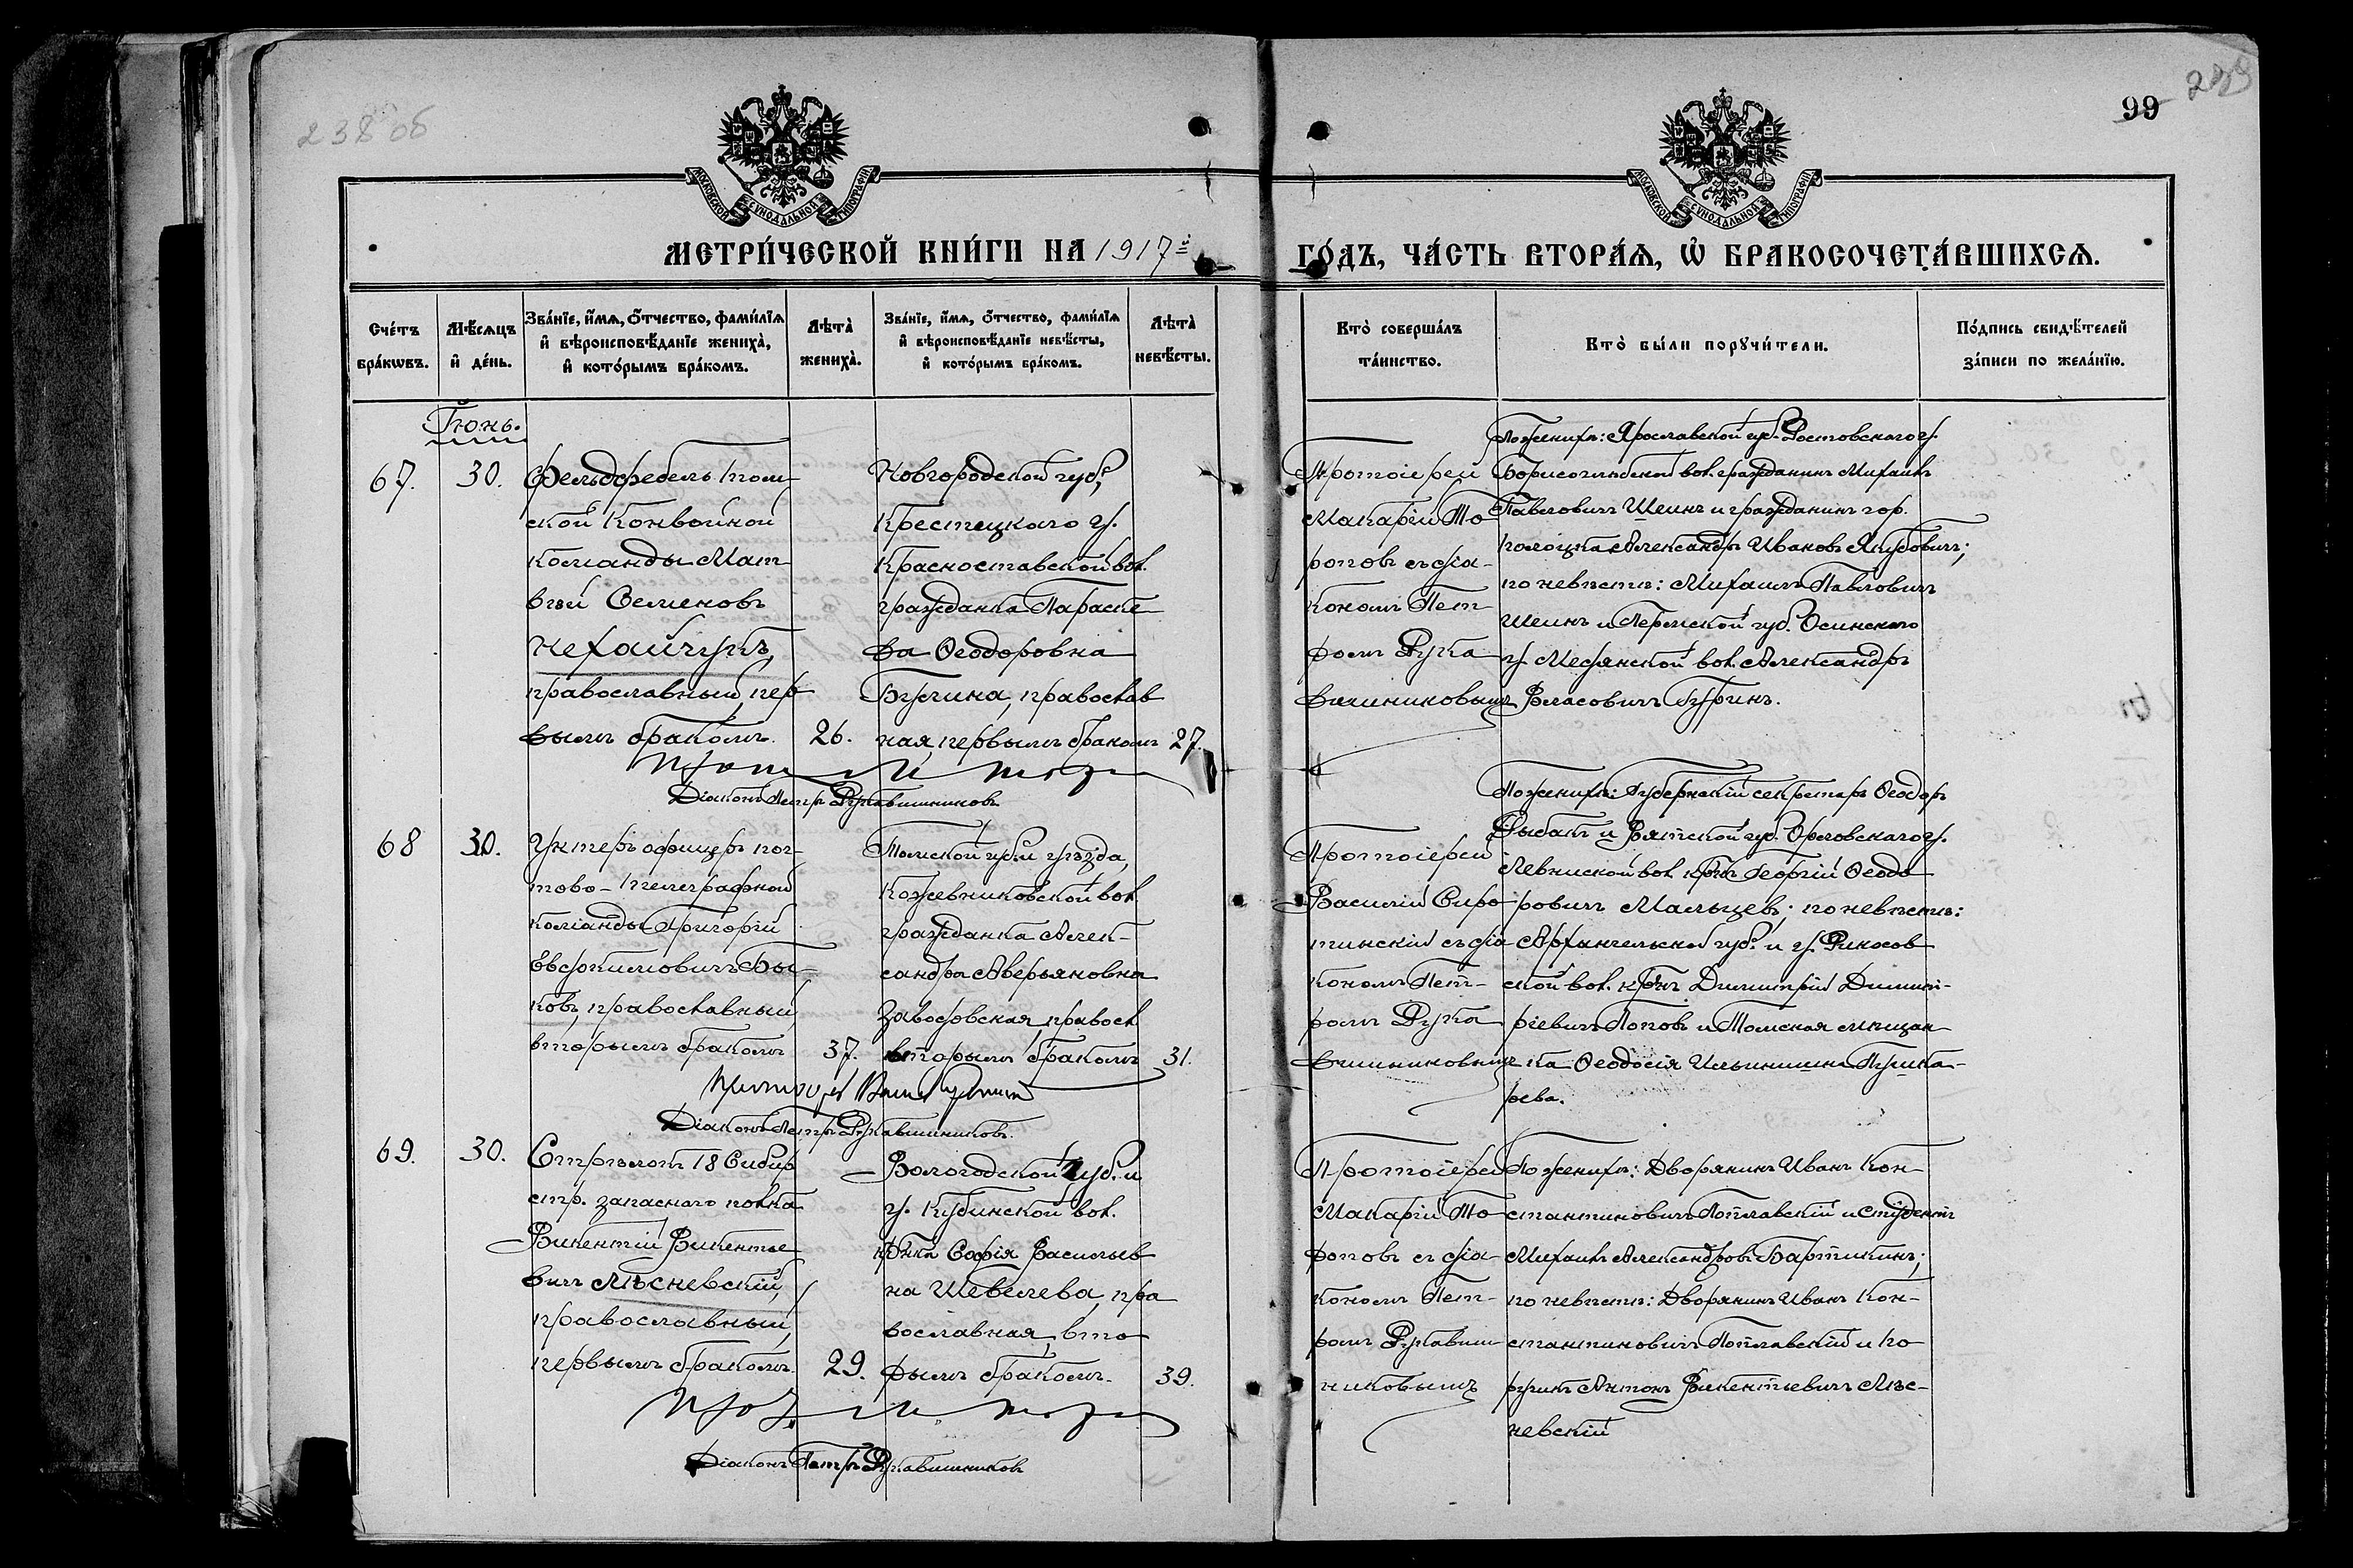 238 об
99
МОСКОВСКОЙ СУНОДАЛЬНОЙ ТИПОГРАФІИ
МОСКОВСКОЙ СУНОДАЛЬНОЙ ТИПОГРАФІИ
МЕТРИ́ЧЕСКОЙ КНИ́ГИ НА 1917й
ГО́ДЪ, ЧА́СТЬ ВТОРА́Ѧ, Ѡ҆ БРАКОСОЧЕТА́ВШИХСѦ.
Сче́тъ
бра́кѡвъ.
Мѣ́сѧцъ
и҆ де́нь.
Зва́нїе, и҆́мѧ, о҆́тчество, фами́лїѧ
и҆ вѣроисповѣ́данїе жениха̀,
и҆ кото́рымъ бра́комъ.
Лѣта̀
жениха̀.
Зва́нїе, и҆́мѧ, о҆́тчество, фами́лїѧ
и҆ вѣроисповѣ́данїе невѣ́сты,
и҆ кото́рымъ бра́комъ.
Лѣта̀
невѣ́сты.
Кто̀ соверша́лъ
та́инство.
Кто̀ бы́ли порꙋчи́тели.
По́дпись свидѣ́телей
за́писи по жела́нїю.
Іюнь.
67.
30.
Фельдфебель Том-
ской Конвойной
команды Мат-
вѣй Семеновъ
Нехайчукъ,
православный, пер
вымъ бракомъ.
26.
Новгородской губ.,
Крестецкаго у.
Красноставской вол.
гражданка Параске-
ва Ѳеодоровна
православ
ная, первымъ бракомъ
27.
Протоіерей
Макарій То
роповъ съ діа-
кономъ Пет-
ромъ Рука
вишниковымъ
По женихѣ: Ярославской губ. Ростовскаго у.
Борисоглѣбской вол. гражданинъ Михаилъ
Павловичъ Шеинъ и гражданинъ гор.
Полоцка Александръ Ивановъ Якубовичъ;
по невѣстѣ: Михаилъ Павловичъ
Шеинъ и Пермской губ. Осинскаго
у. вол. Александръ
Власовичъ Гуринъ.
Діаконъ Петръ Рукавишниковъ
68
30.
Унтеръ офицеръ поч-
тово-телеграфной
команды Григорій
Евфкимовичъ Бы-
ковъ, православный,
вторымъ бракомъ
37.
Томской губ. и уѣзда,
Кожевниковской вол.
гражданка Алек-
сандра Аверьяновна
правосл
вторымъ бракомъ
31.
Протоіерей
Василій Сиро
тинскій съ діа
кономъ Пет-
ромъ Рука
вишниковымъ
По женихѣ: Губернскій секретарь Ѳеодоръ
и Вятской губ. Орловскаго у.
вол. крнъ Георгій Ѳеодо
ровичъ Мальцевъ; по невѣстѣ:
Архангельской губ. и у.
ской вол. крнъ Димитрій Димит-
ріевичъ Поповъ и Томская мѣщан
ка Ѳеодосія Ильинишна Пушка-
рева.
Діаконъ Петръ Рукавишниковъ.
69.
30.
Стрѣлокъ 18 Сибир
стр. запаснаго полка
Викентій Викентье
вичъ Лѣсневскій,
православный,
первымъ бракомъ.
29.
Вологодской губ. и
у. Кубинской вол.
крнка Софія Васильев
на Шевелева, пра
вославная, вто
рымъ бракомъ.
39.
Протоіерей
Макарій То
роповъ съ діа-
кономъ Пет-
ромъ Рукавиш
никовымъ
По женихѣ: Дворянинъ Иванъ Кон-
стантиновичъ Поплавскій и студентъ
Михаилъ Александровъ
по невѣстѣ: Дворянинъ Иванъ Кон-
стантиновичъ Поплавскій и по
ручикъ Антонъ Викентьевичъ Лѣс-
невскій
Діаконъ Петръ Рукавишниковъ